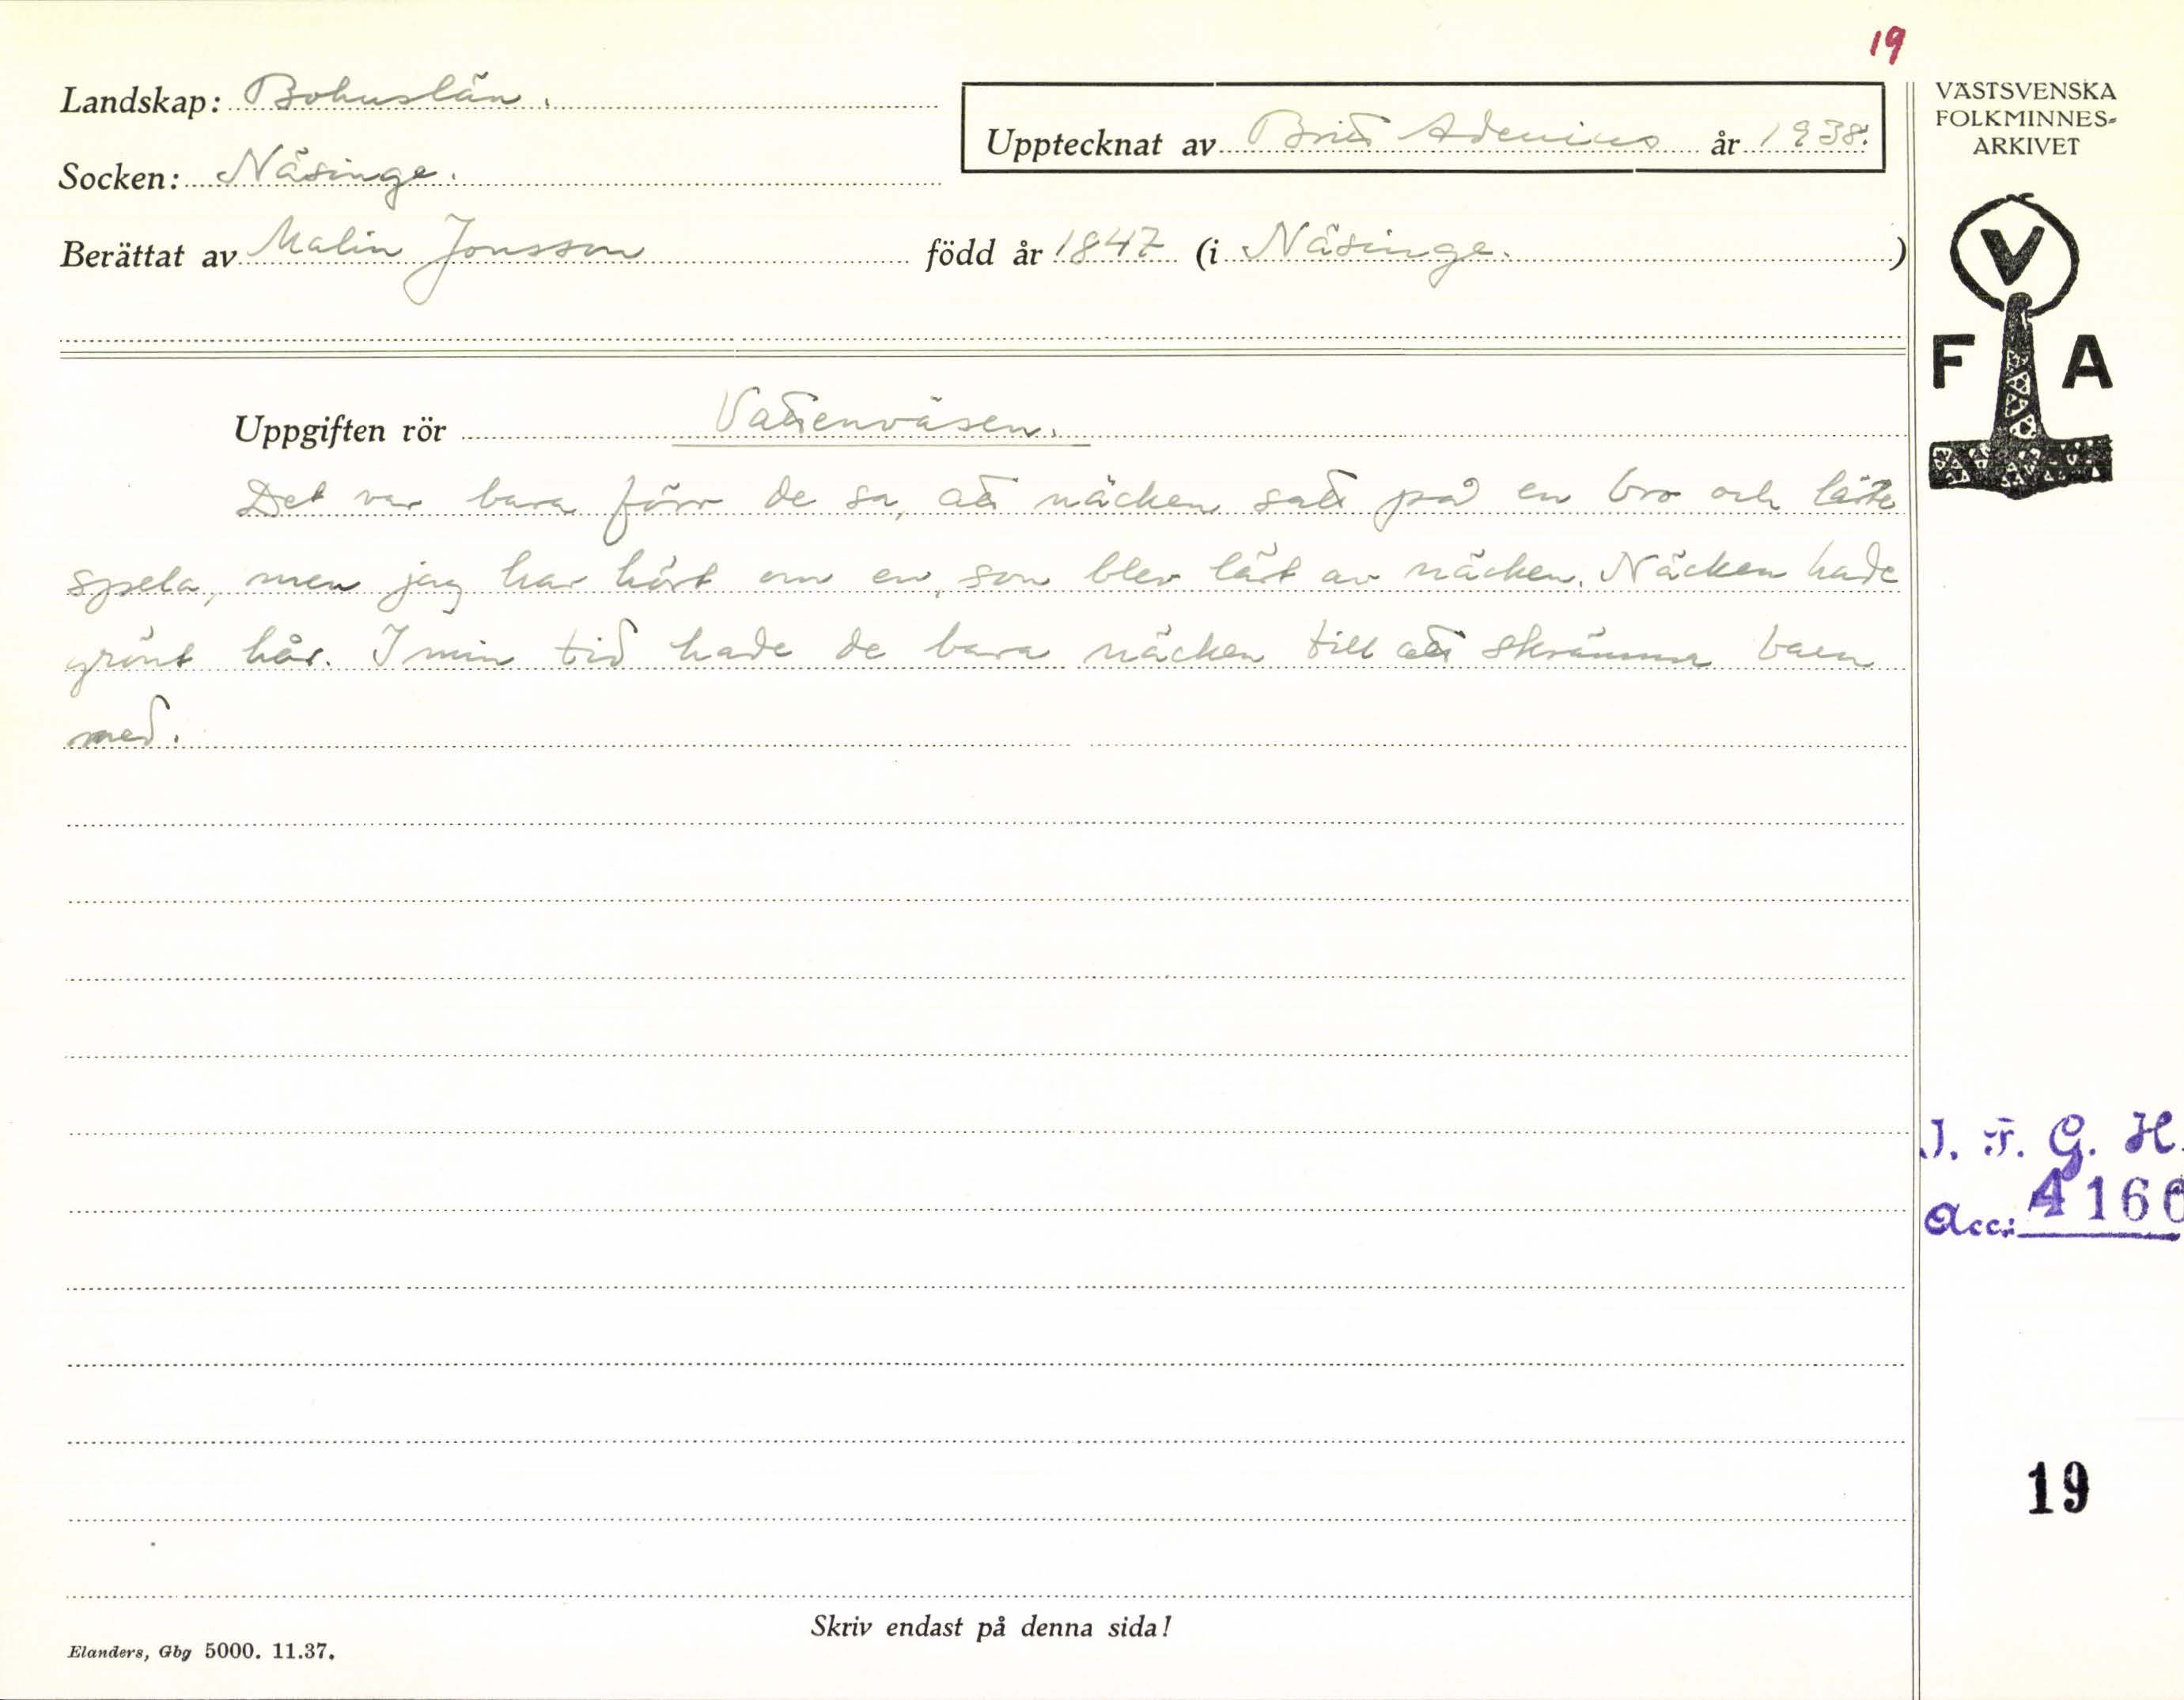 19
Landskap: Bohuslän.
Upptecknat av Britt Adenius år 1938.
Socken: Näsinge.
Berättat av Malin Jonsson född år 1847 (i Näsinge.)
VÄSTSVENSKA
FOLKMINNES-
ARKIVET
V
F A
Uppgiften rör Vattenväsen.
Det var bara förr de sa, att näcken satt på en bro och lärde
spela, men jag har hört om en, som blev lärt av näcken. Näcken hade
grönt hår. I min tid hade de bara näcken till att skrämma barn
med.
I. F. G. H.
Acc: 4166
19
Skriv endast på denna sida!
Elanders, Gbg 5000. 11.37.